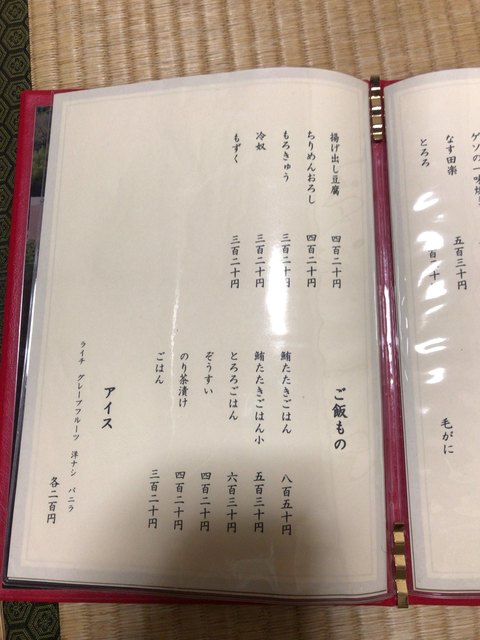 ゲソの一味焼き
なす田楽 五百三十円
とろろ
毛がに
揚げ出し豆腐 四百二十円
ちりめんおろし 四百二十円
もろきゅう 三百二十円
冷奴 三百二十円
もずく 三百二十円
ご飯もの
鮪たたきごはん 八百五十円
鮪たたきごはん小 五百三十円
とろろごはん 六百三十円
ぞうすい 四百二十円
のり茶漬け 四百二十円
ごはん 三百二十円
アイス
ライチ グレープフルーツ 洋ナシ バニラ
各二百円